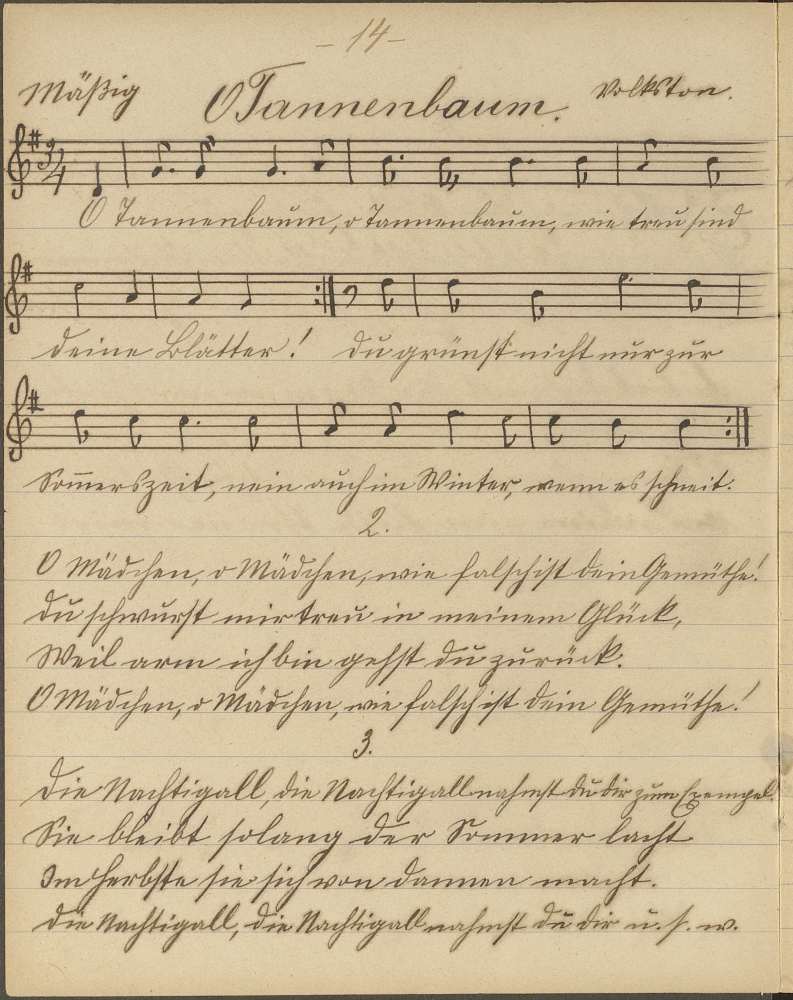 – 14 –
Mäßig O Tannenbaum. Volkston.
3/4
O Tannenbaum, o Tannenbaum, wie treu sind
deine Blätter! Du grünst nicht nur zur
Som̅erszeit, nein auch im Winter, wenn es schneit.
2.
O Mädchen, o Mädchen, wie falsch ist dein Gemüthe!
Du schwurst mir treu in meinem Glück,
Weil arm ich bin gehst du zurück.
O Mädchen, o Mädchen, wie falsch ist dein Gemüthe!
3.
Die Nachtigall, die Nachtigall nahmst du dir zum Exempel.
Sie bleibt solang der Sommer lacht
Im Herbste sie sich von dannen macht.
Die Nachtigall, die Nachtigall nahmst du dir u. s. w.